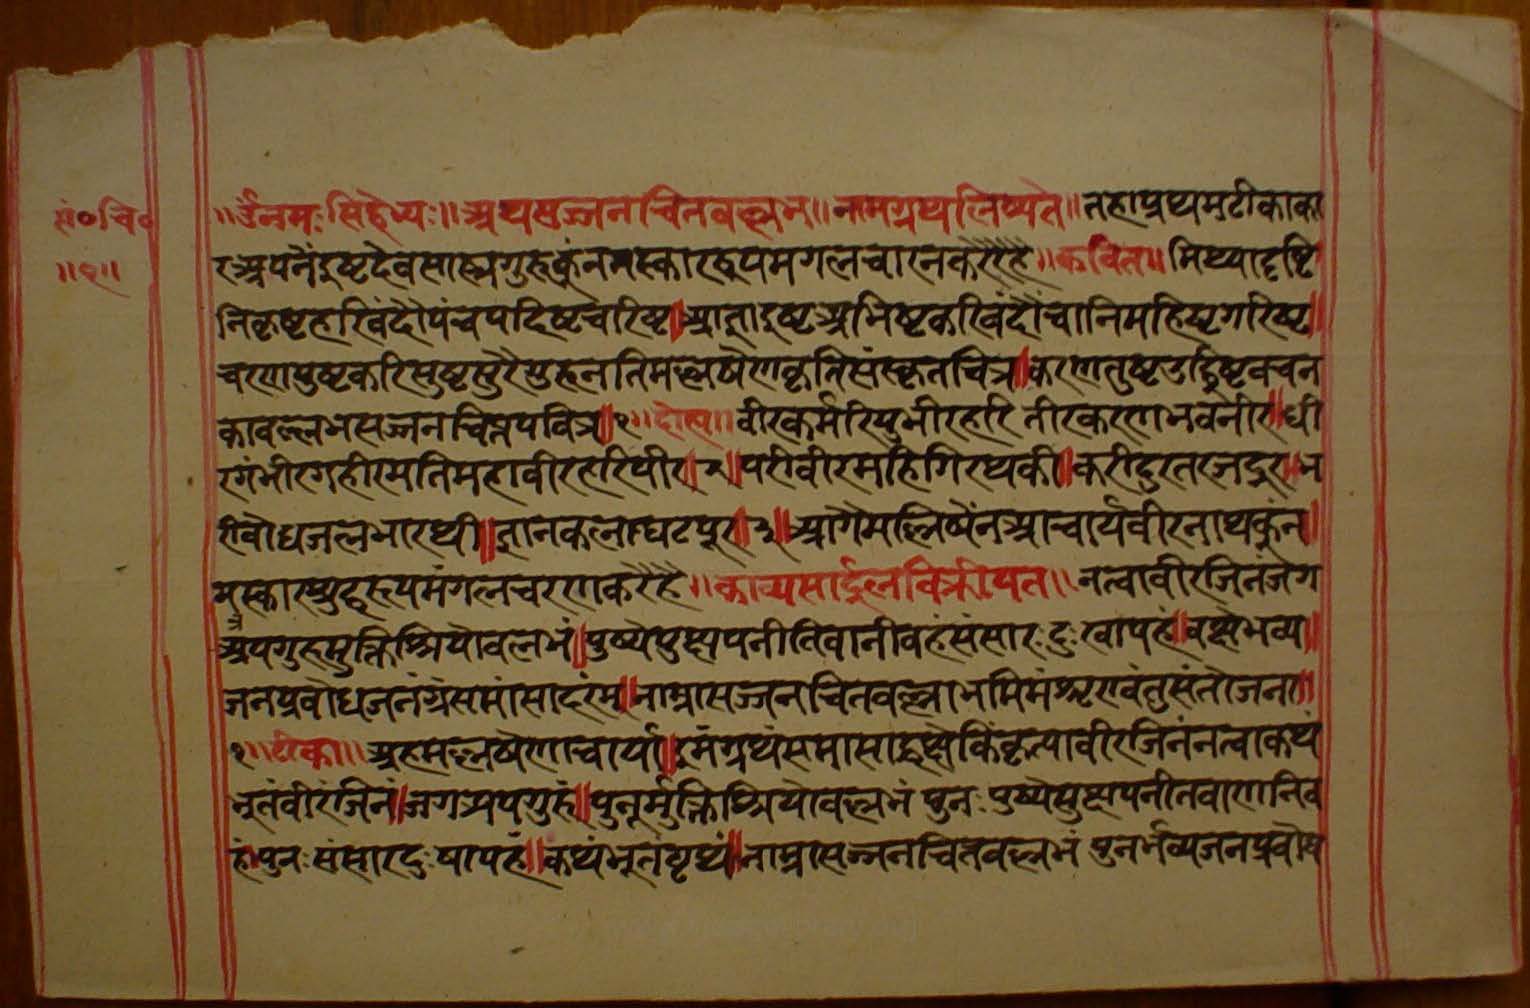 स॰चि॰
॥१॥
॥ॐनमःसिद्देभ्यः॥अथसज्जनचितवल्लभ॥नामग्रथलिष्यते॥तहाप्रथमटीकाका
रअपनैंइष्टदेवसास्त्रगुरुकूंनमस्काररूपमगलचारनकरैहै॥कवित॥मिथ्यादृष्टि
निकृष्टहरिवंदौपंचपदिष्टचारिष्ट॥ज्ञाताइष्टअभिष्टकरिवंदौंवानिमहिष्टगरिष्ट॥
चरणपुष्टकरिसुष्टसुरैगुरुनतिमल्लषेणकृतिसंस्कृतचित्र॥करणतुष्टउद्दिष्टवचन
कावल्लभसज्जनचित्तपवित्र॥१॥दोहा॥वीरकर्मरिपुभीरहरितीरकरणभवनीर॥धी
रगंभीरगहीरमतिमहावीरहरिपीर॥२॥परीवीरमहिगिरथकी॥करीदुरतरजदूर॥भ
रीवोधजलभारथी॥ज्ञानकलाघटपूर॥३॥आगैमल्लिषेंनआचार्यवीरनाथकूंन॥
मस्कार रूपमंगलचरणकरैहै॥काव्यसार्दूलविक्रीयत॥नत्वावीरजिनंजग
त्रैयगुरुमुक्तिश्रियोवल्लभं॥पुष्येषुक्षयनीतिवानीवहंसंसारःदुःखापहं॥वक्षेभव्य॥
जनप्रवोधजनंग्रंसमांसादरंम्॥नाम्नासज्जनचितवल्लाभमिमंश्रृणवंतुसंतोजना॥
१॥टीका॥अहमल्लषेणाचार्या॥इमंग्रथंसमासाद्वक्षेकिंकृत्यावीरजिनंनत्वाकथं
भूतंवीरंजिनं॥जगत्रयगुरुं॥पुनूर्मुक्तिश्रियोवल्लभं पुनःपुष्येसुक्षयनीतवाणनिव
हंपुनःसंसारदुःषापहं॥कथंभूतंग्रथं॥नाम्नासज्जनचितवल्लभं पुनर्भव्यजनप्रवोध